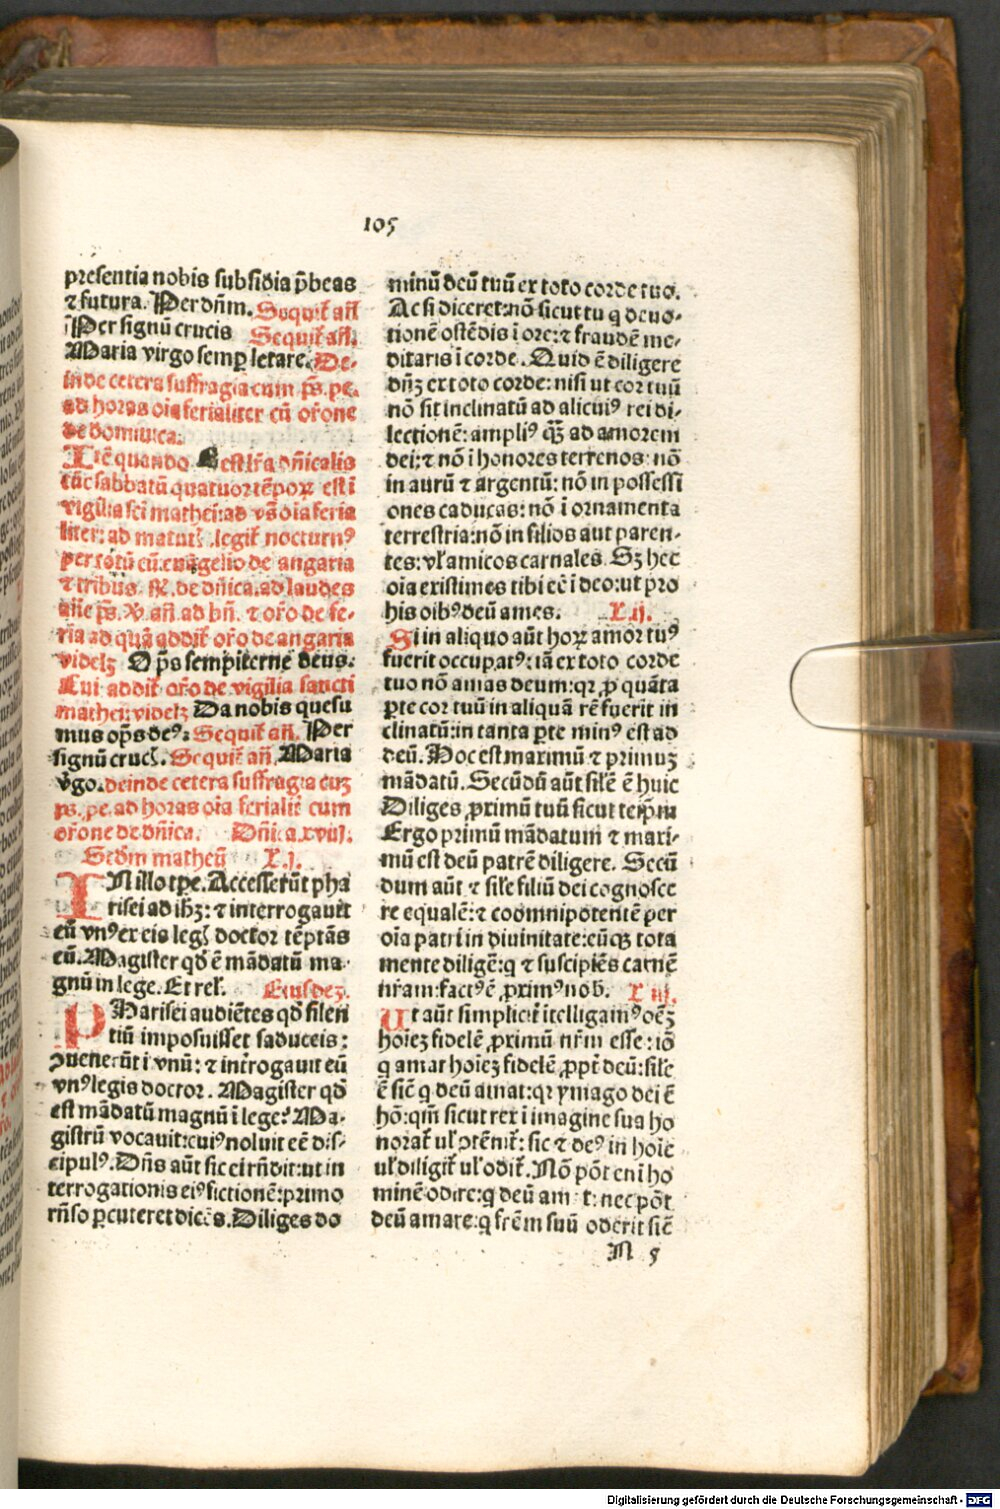 105
presentia nobis subsidia p̄beas
⁊ futura. Per dn̄m. Sequit̃ añ
ı̄Per signū crucis Sequit̃ añ.
Maria virgo semꝑ letare. De-
inde cetera suffragia cum p̄s. pe.
ad horas oı̄a ferialiter cū or̄one
de dominica.
Itē quando est lr̄a dn̄icalis
tūc sabbatū quatuor tēpoꝝ est ī
vigilia scı̄ mathei: ad vs̄ oı̄a feria
liter: ad matut̃ .legit̃ nocturnꝰ
per totū cū euāgelio de angaria
⁊ tribus. R̄. de dn̄ica. ad laudes
añe p̄s. V. añ. ad bn̄. ⁊ or̄o de fe-
ria ad quā addit̃ or̄o de angaria
videlꝫ Op̄s sempiterne deus.
Cui addit̃ or̄o de vigilia sancti
mathei: videlꝫ Da nobis quesu
mus op̄s deꝰ: Sequit̃ añ. Per
signū crucꝭ. Sequit̃ añ. Maria
v̄go. deinde cetera suffragia cuꝫ
p̄s. pe. ad horas oı̄a ferialit̃ cum
or̄one de dn̄ica. Dn̄ica.xviij.
Scdm̄ matheū L.j.
IN illo tp̄e. Accesserūt pha
risei ad ihꝫ: ⁊ interrogauit
eū vnꝰ ex eis legꝭ doctor tēptās
eū. Magister qd̄ ē mādatū ma-
gnū in lege. Et rel̃. Eiusdeꝫ.
PHarisei audiētes qd̄ silen
tiū imposuisset saduceis:
ↄuenerūt ī vnū: ⁊ int̃rogauit eū
vnꝰ legis doctor. Magister qd̄
est mādatū magnū ī lege? Ma-
gistrū vocauit: cuiꝰ noluit eē dis-
cipulꝰ. Dn̄s aūt sic ei rn̄dit: ut in
terrogationis eiꝰ fictionē: primo
rn̄so ꝑcuteret dicēs. Diliges do
minū deū tuū ex toto corde tuo.
Ac si diceret: nō sicut tu q̄ deuo-
tionē ostēdis ī ore: ⁊ fraudē me-
ditaris ī corde. Quid ē diligere
dn̄ꝫ ex toto corde: nisi ut cor tuū
nō sit inclinatū ad alicuiꝰ rei di-
lectionē: ampliꝰ qꝫ̄ ad amorem
dei: ⁊ nō ī honores terrenos: nō
in aurū ⁊ argentū: nō in possessi
ones caducas: nō ī ornamenta
terrestria: nō in filios aut paren-
tes: vl̃ amicos carnales. Sꝫ hec
oı̄a existimes tibi eē ī deo: ut pro
his oı̄bꝰ deū ames. L.ij.
Si in aliquo aūt hoꝝ amor tuꝰ
fuerit occupatꝰ: iā ex toto corde
tuo nō amas deum: qꝛ ꝓ quāta
ꝑte cor tuū in aliquā rē fuerit in
clinatū: in tanta ꝑte minꝰ est ad
deū. Hoc est maximū ⁊ primuꝫ
mādatū. Secūdū aūt sil̃e ē huic
Diliges ꝓximū tuū sicut teip̄m
Ergo primū mādatum ⁊ maxi-
mū est deū patrē diligere. Secū
dum aūt ⁊ sil̃e filiū dei cognosce
re equalē: ⁊ coomnipotentē per
oı̄a patri in diuinitate: eūqꝫ tota
mente diligē: q̄ ⁊ suscipiēs carnē
nr̄am: factꝰ ē ꝓximꝰ nob. L iij.
Ut aūt simplicit̃ ītelligamꝰ oēꝫ
hoı̄eꝫ fidelē ꝓximū nr̄m esse: iō
q̄ amat hoı̄eꝫ fidelē ꝓpt̃ deū: sil̃e
ē sic̄ q̄ deū amat: qꝛ ymago dei ē
hō: qm̄ sicut rex ī imagine sua ho
norat̃ ul̃ ↄtēnit̃: sic ⁊ deꝰ in hoı̄e
ul̃ diligit̃ ul̃ odit̃. Nō pōt enī ho
minē odire: q̄ deū amat: nec pōt
deū amare: q̄ fr̄em suū oderit sic̄
N 5
Digitalisierung gefördert durch die Deutsche Forschungsgemeinschaft - DFG